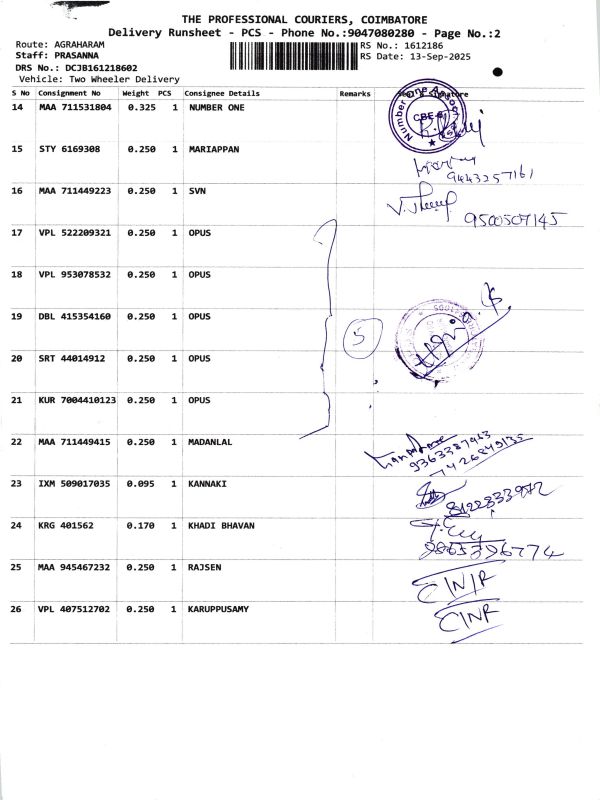 THE PROFESSIONAL COURIERS, COIMBATORE
Delivery Runsheet - PCS - Phone No.:9047080280 - Page No.:2
Route: AGRAHARAM
Staff: PRASANNA
DRS No.: DCJB161218602
Vehicle: Two Wheeler Delivery
RS No.: 1612186
RS Date: 13-Sep-2025
S No Consignment No Weight PCS Consignee Details Remarks
14 MAA 711531804 0.325 1 NUMBER ONE
15 STY 6169308 0.250 1 MARIAPPAN
9443257161
16 MAA 711449223 0.250 1 SVN
9500507145
17 VPL 522209321 0.250 1 OPUS
18 VPL 953078532 0.250 1 OPUS
19 DBL 415354160 0.250 1 OPUS
5
20 SRT 44014912 0.250 1 OPUS
21 KUR 7004410123 0.250 1 OPUS
22 MAA 711449415 0.250 1 MADANLAL
23 IXM 509017035 0.095 1 KANNAKI
24 KRG 401562 0.170 1 KHADI BHAVAN
9865396774
25 MAA 945467232 0.250 1 RAJSEN
26 VPL 407512702 0.250 1 KARUPPUSAMY